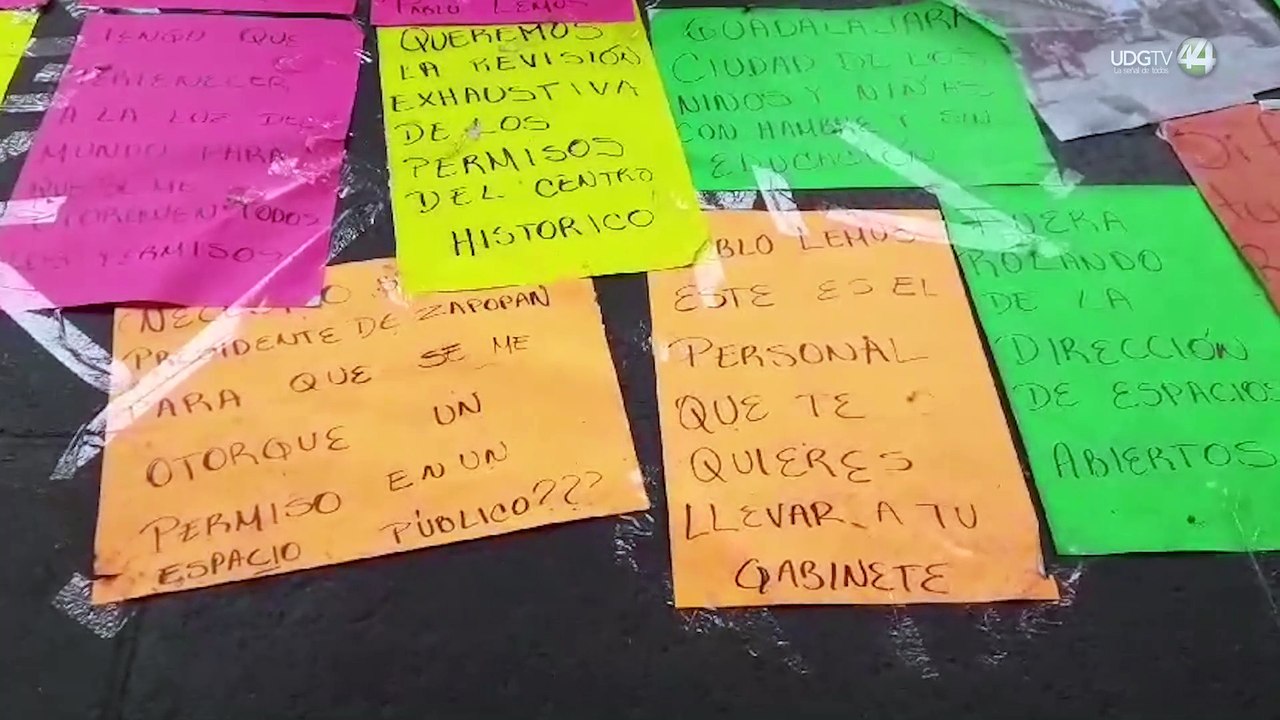 PABLO LEMUS
TENGO QUE
PERTENECER
A LA LUZ DEL
MUNDO PARA
QUE SE ME
OTORGUEN TODOS
LOS PERMISOS
QUEREMOS
LA REVISIÓN
EXHAUSTIVA
DE LOS
PERMISOS
DEL CENTRO
HISTORICO
GUADALAJARA
CIUDAD DE LOS
NIÑOS Y NIÑAS
CON HAMBRE Y SIN
EDUCACIÓN
UDGTV 44
La señal de todos
PRESIDENTE DE ZAPOPAN
PARA QUE SE ME
OTORQUE UN
PERMISO EN UN
ESPACIO PÚBLICO???
PABLO LEMUS
ESTE ES EL
PERSONAL
QUE TE
QUIERES
LLEVAR A TU
GABINETE
FUERA
ROLANDO
DE LA
DIRECCIÓN
DE ESPACIOS
ABIERTOS